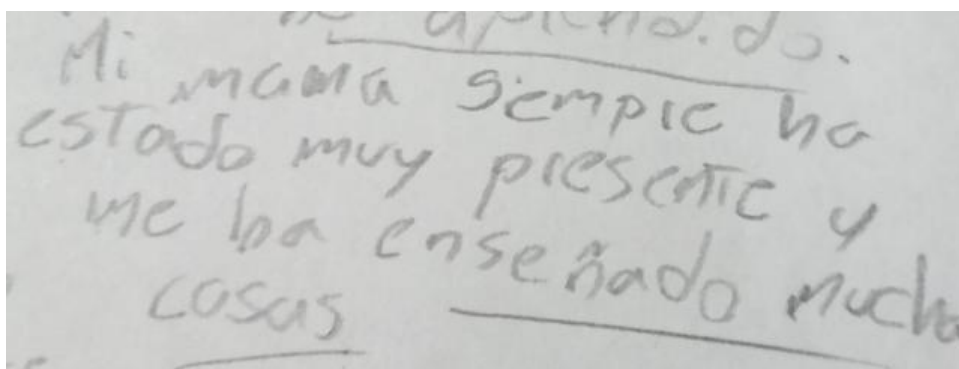 aprendido.
Mi mama siempre ha
estado muy presente y
me ha enseñado mucha
cosas